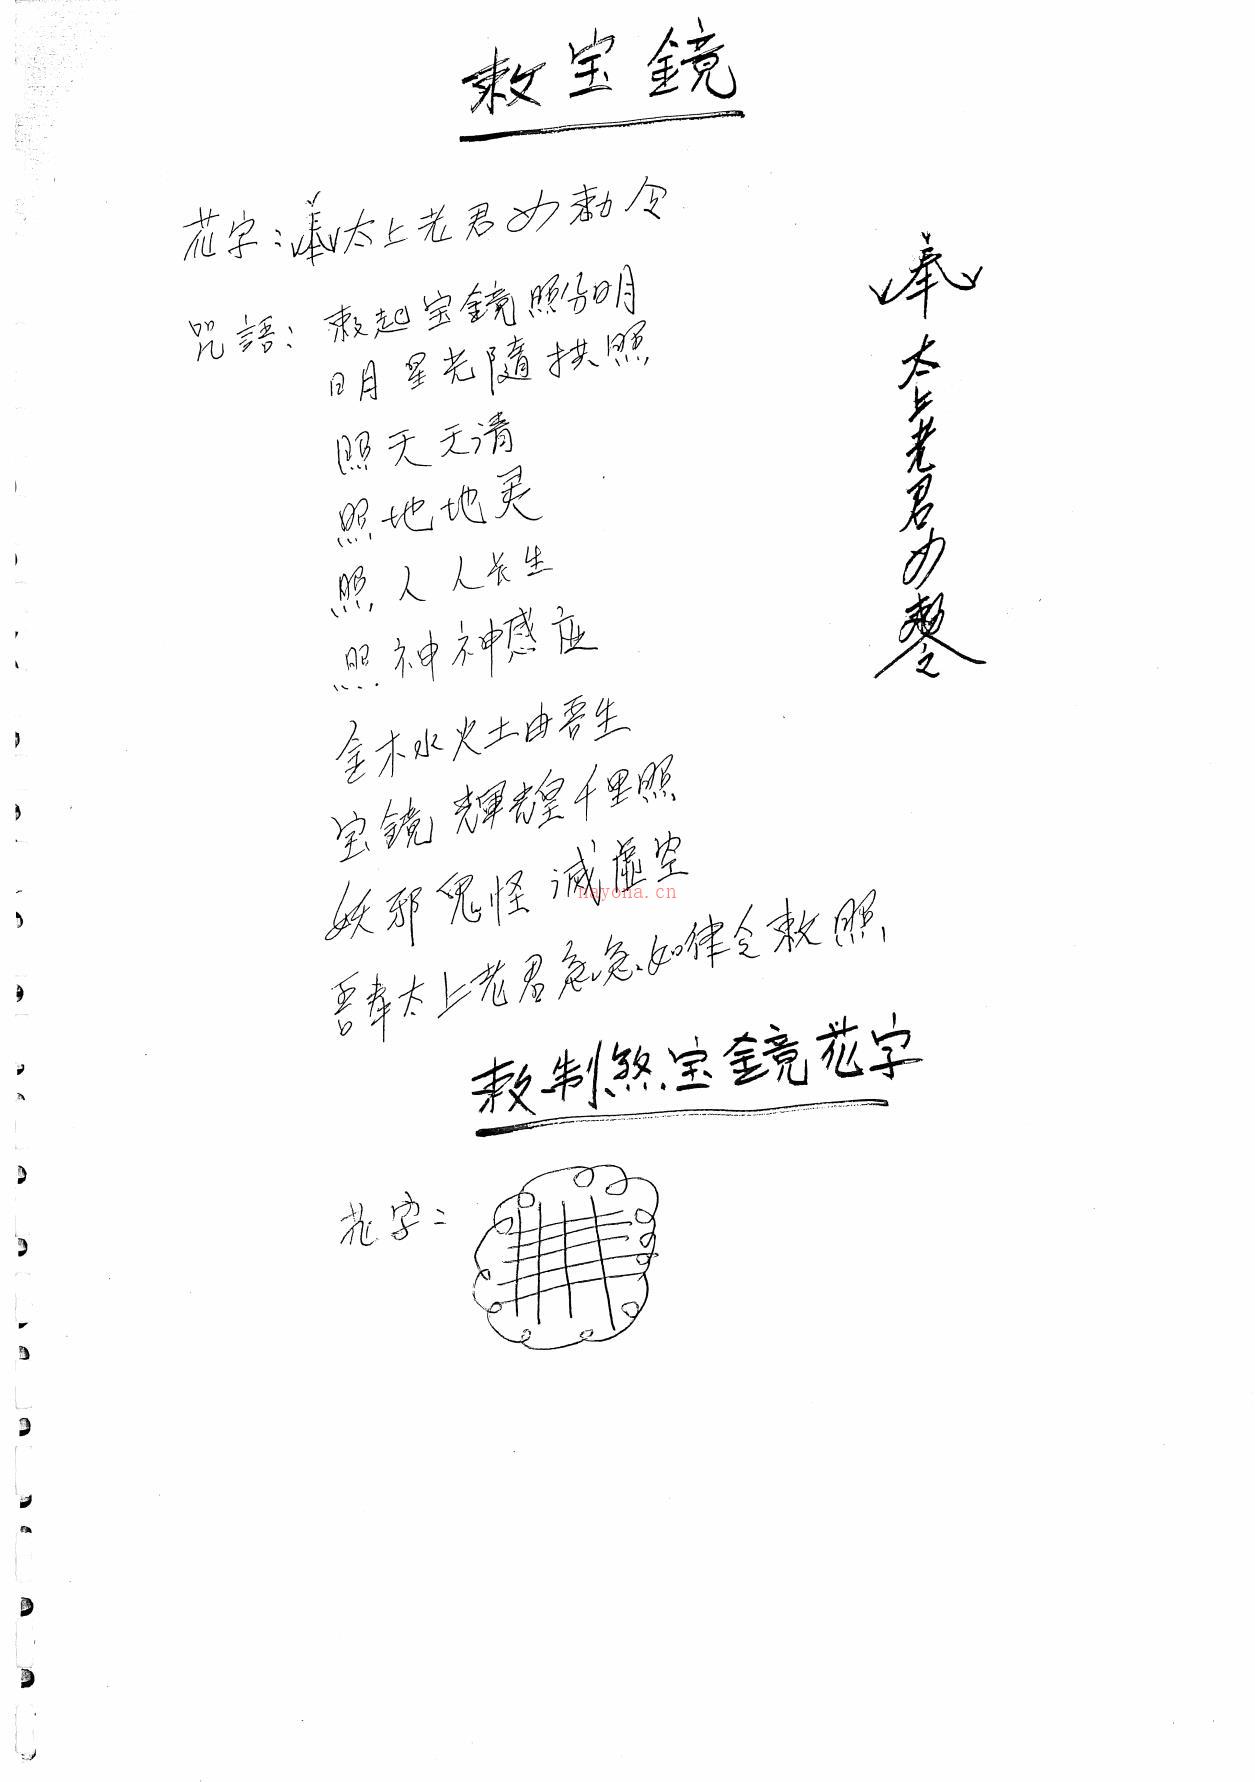 敕宝鏡
花字：奉太上老君女勅令
咒語：敕起宝鏡照分明
日月星光隨拱照
照天天清
照地地灵
照人人长生
照神神感应
金木水火土由吾生
宝鏡輝煌千里照
妖邪鬼怪滅虛空
nayona.cn
吾奉太上老君急急如律令敕照
奉太上老君女勅令
敕制煞宝鏡花字
花字：